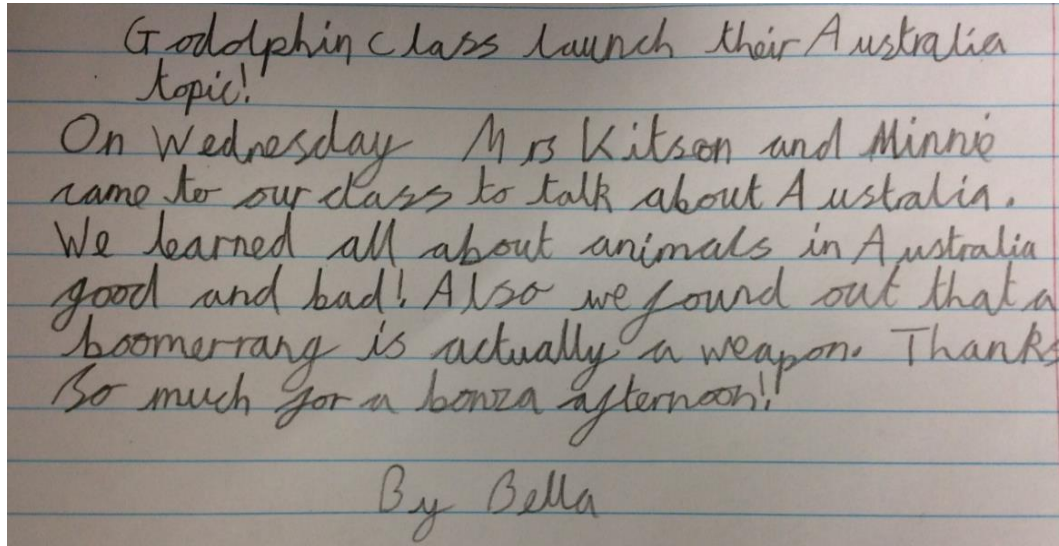 Godolphin class launch their Australia
topic!
On Wednesday Mrs Kitson and Minnie
came to our class to talk about Australia.
We learned all about animals in Australia
good and bad! Also we found out that a
boomerrang is actually a weapon. Thanks
so much for a bonza afternoon!!
By Bella